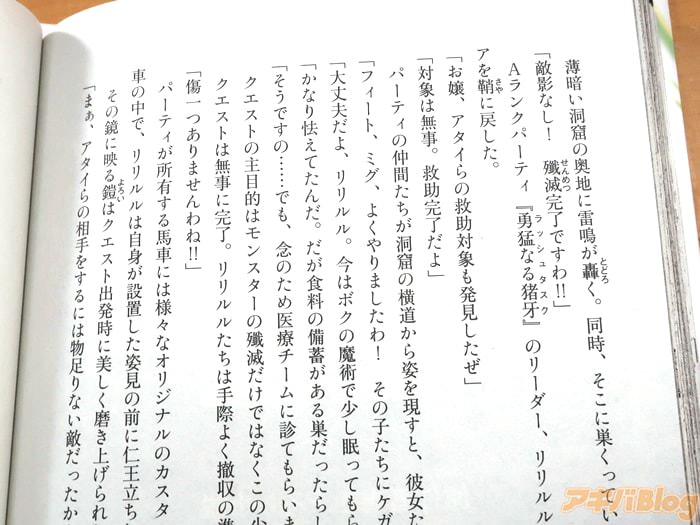 薄暗い洞窟の奥地に雷鳴が轟く。同時、そこに巣くってい
「敵影なし！　殲滅完了ですわ!!」
Aランクパーティ『勇猛なる猪牙』のリーダー、リリルル
アを鞘に戻した。
「お嬢、アタイらの救助対象も発見したぜ」
「対象は無事。救助完了だよ」
パーティの仲間たちが洞窟の横道から姿を現すと、彼女な
「フィート、ミグ、よくやりましたわ！　その子たちにケガ
「大丈夫だよ、リリルル。今はボクの魔術で少し眠っても
「かなり怯えてたんだ。だが食料の備蓄がある巣だったらし
「そうですの……でも、念のため医療チームに診てもらいま
クエストの主目的はモンスターの殲滅だけではなくこの少
クエストは無事に完了。リリルルたちは手際よく撤収の準
「傷一つありませんわね!!」
パーティが所有する馬車には様々なオリジナルのカスタ
車の中で、リリルルは自身が設置した姿見の前に仁王立ち
その鏡に映る鎧はクエスト出発時に美しく磨き上げられ
「まぁ、アタイらの相手をするには物足りない敵だったか
さや
せんめつ
ラッシュタスク
とどろ
よろい
アキバBlog